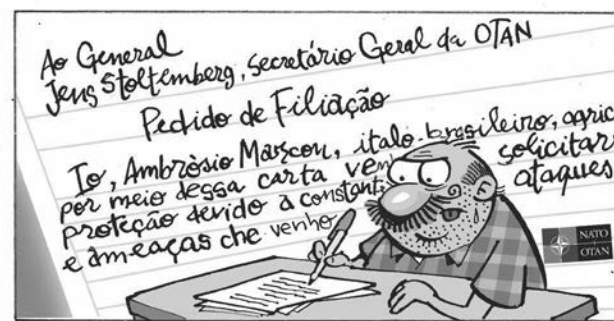 Ao General
Jens Stoltemberg, secretário Geral da OTAN
Pedido de Filiação
Io, Ambrósio Marcon, italo-brasileiro, agric
por meio dessa carta ven solicitar
proteção devido a constant ataques
e ameaças che venho
NATO
OTAN